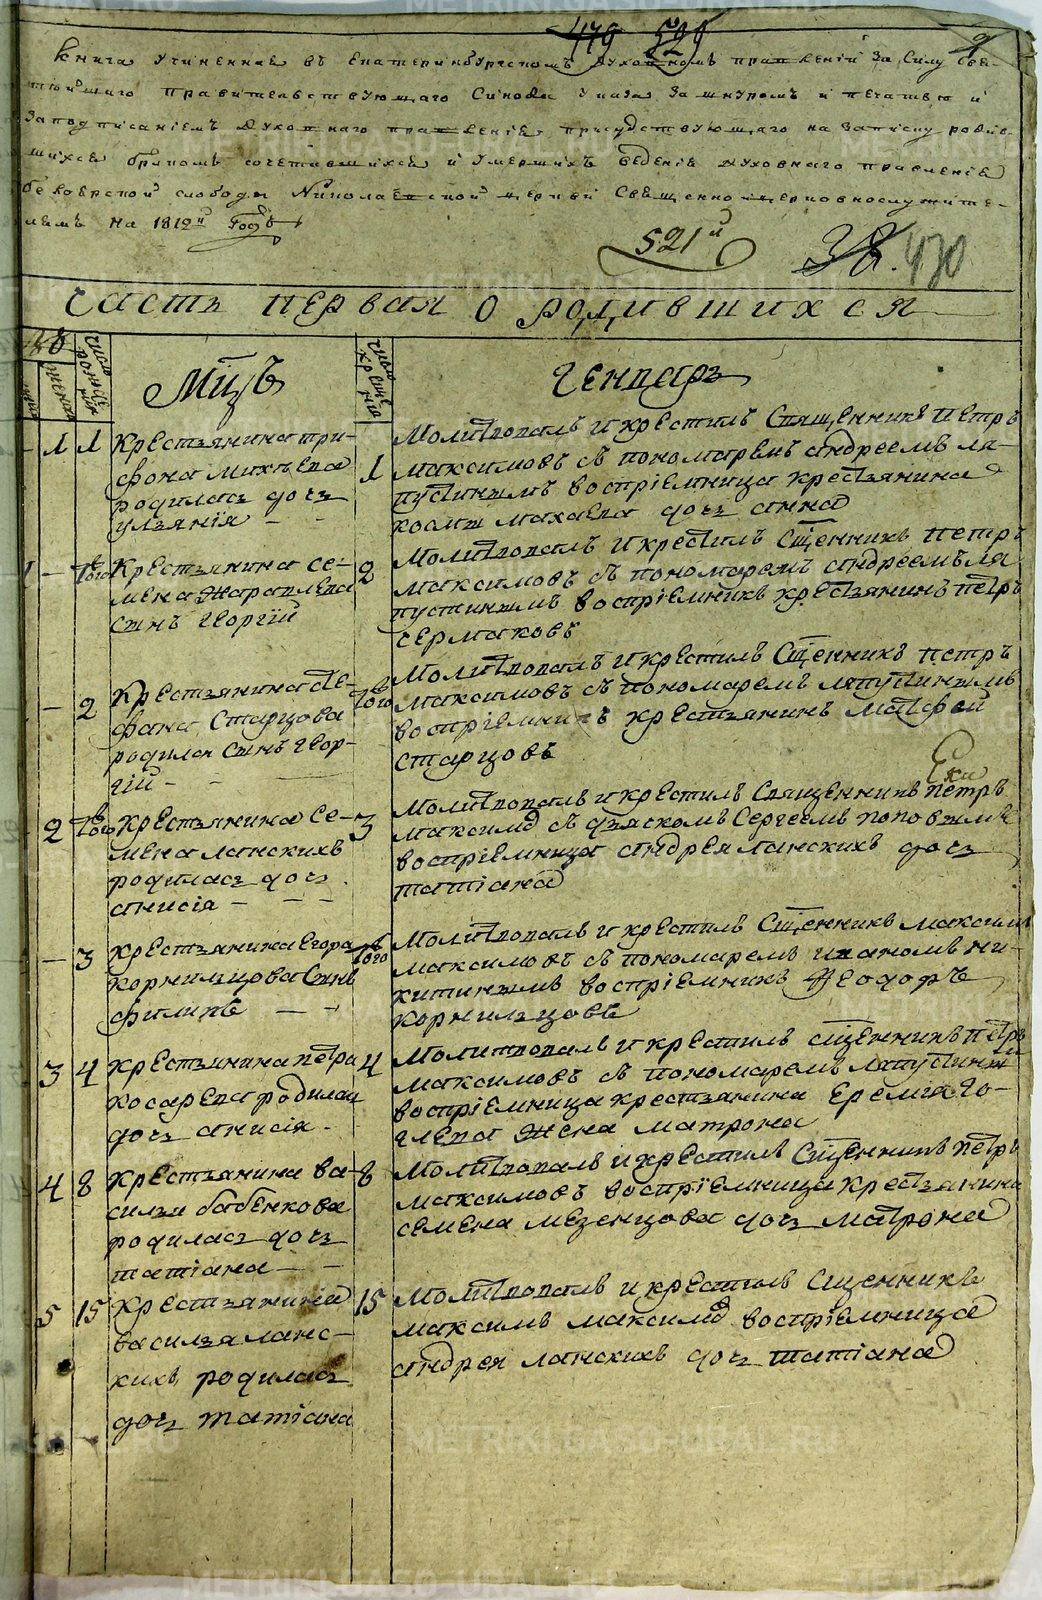 479 529 9
Книга учиненная въ Екатеринбургскомъ духовномъ правленiи за силу Свя-
тѣйшаго правительствующаго Синода указа за шнуромъ и печатью и
заподписанiемъ духовнаго правленiя присудствующаго на записку родив-
шихся бракомъ сочетавшихся и умершихъ веденiя духовнаго правленiя
Беловрской слободы Николаевской церкви Священноицерковнослужите-
лямъ на 1812й Годъ
521й 38. 470
Часть первая о родившихся
Мцъ
Генварь
1 1 Крестьянина три-
фона Михѣева
родилась дочь
ульянiя
1 Молитвовалъ и крестилъ Священникъ Петръ
максимовъ съ пономаремъ андреемъ ла-
пустинымъ воспрiемница крестьянина
козмы махаева дочь анна
1 - Тогo Крестьянина се-
мена Жаравлева
сынъ георгiй
2 Молитвовалъ и крестилъ Сщенникъ петръ
максимовъ съ пономаремъ андреемъ ла
пустинымъ воспрiемникъ крестьянинъ петръ
сермяковъ
- 2 Крестьянина сте-
фана Старцова
родился сынъ геор-
гiй
Того Молитвовалъ и крестилъ Сщенникъ петръ
максимовъ съ пономаремъ лапустинымъ
воспрiемникъ крестьянинъ матфей
старцовъ
2 Того Крестьянина се-
мена ланскихъ
родилась дочь
анисiя
3 Молитвовалъ и крестилъ Священникъ петръ
максимо съ дьякомъ Сергеемъ поповымъ
воспрiемница андрея ланскихъ дочь
татiана
- 3 Крестьянина Егора
корнильцова Сынъ
филипъ
Того Молитвовалъ и крестилъ Сщенникъ максимъ
максимовъ съ пономаремъ иваномъ ни-
китинымъ воспрiемникъ Феодоръ
корнильцовъ
3 4 Крестьянина петра
косарева родилась
дочь анисiя
4 Молитвовалъ и крестилъ сщенникъ петръ
максимовъ съ пономаремъ лапустинымъ
воспрiемница крестьянина Еремия Го-
глева Жена матрона
4 8 Крестьянина ва-
силья бабенкова
родилась дочь
татiана
8 Молитвовалъ и крестилъ Сщенникъ петръ
максимовъ воспрiемница крестьянина
семена мезенцова дочь матрона
5 15 Крестьянина
василья ланс-
кихъ родилась
дочь татiана
15 Молитвовалъ и крестилъ Сщенникъ
максимъ максимо воспрiемница
андрея ланскихъ дочь татiана